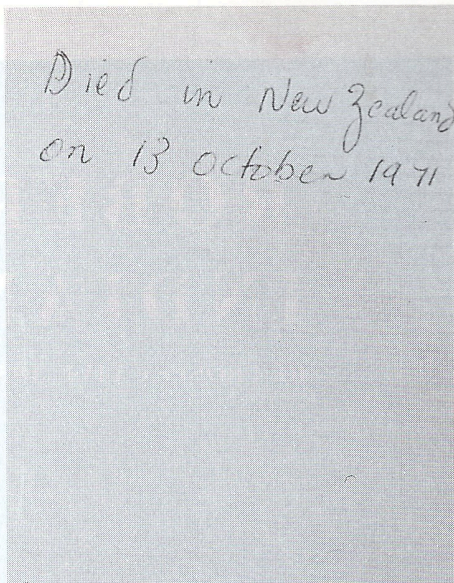 Died in New Zealand
on 13 October 1971